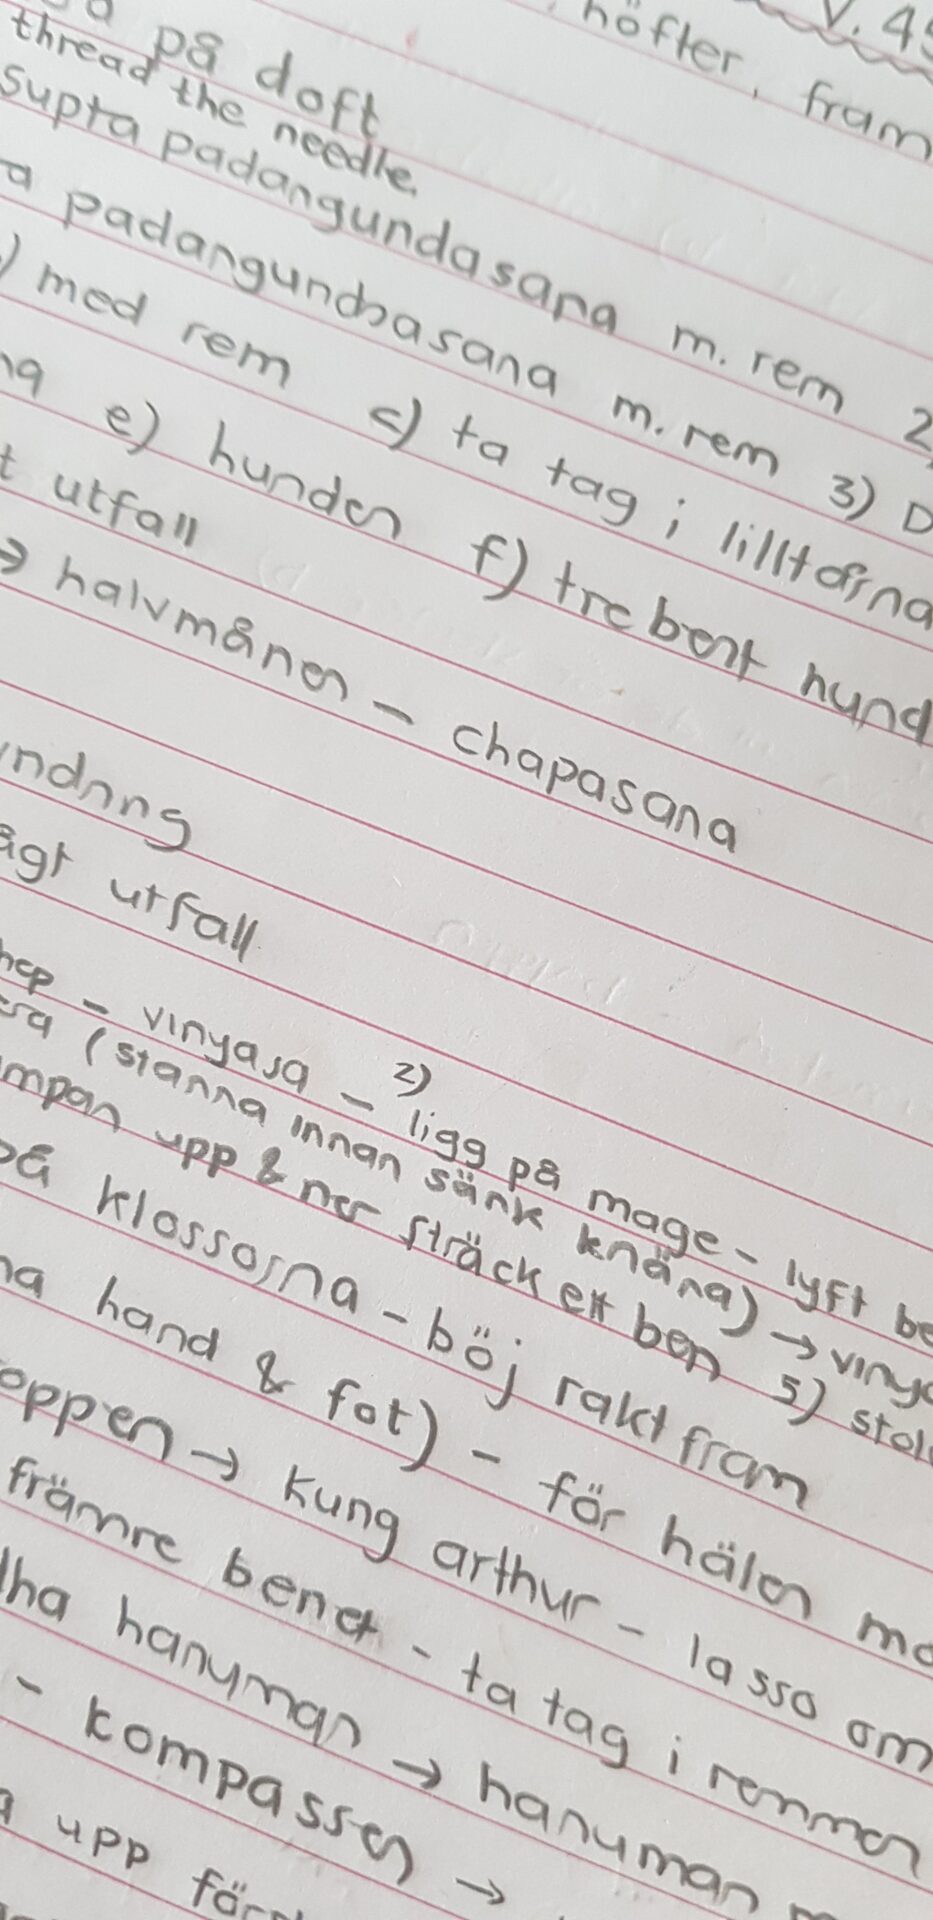 V. 45
höfter, fram
på doft
thread the needle.
supta padangundasana m. rem 2
padangundasana m. rem 3) D
med rem c) ta tag i lilltårna
e) hunden f) trebent hund
utfall
→ halvmånen - chapasana
ndning
ågt utfall
- vinyasa - 2) ligg på mage - lyft be
(stanna innan sänk knäna) → vinya
mpan upp & ner sträck ett ben 5) stol
på klossarna - böj rakt fram
hand & fot) - för hälen mo
oppen → kung arthur - lasso om
främre benet - ta tag i remmen
dha hanuman → hanuman m
- kompassen →
upp för